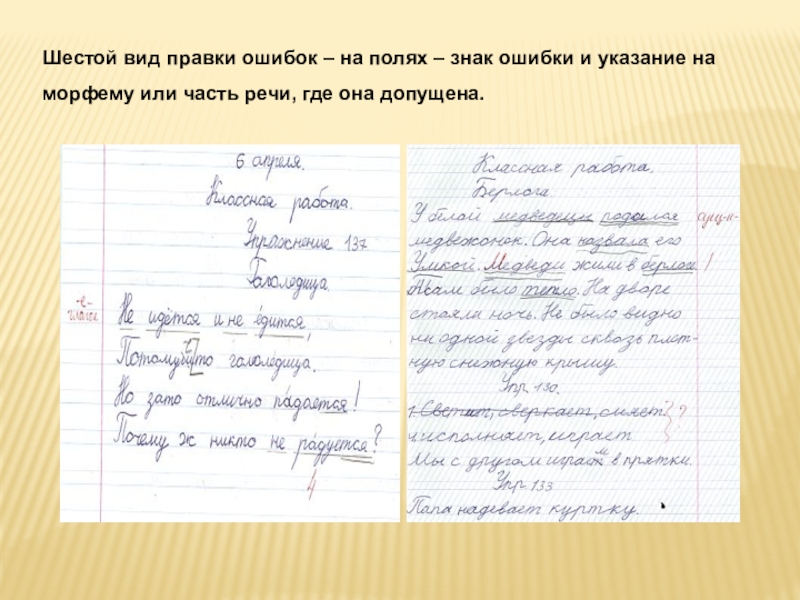 Шестой вид правки ошибок – на полях – знак ошибки и указание на
морфему или часть речи, где она допущена.
6 апреля.
Классная работа.
Упражнение 137
Гололедица.
-е-
глагол
Не идётся и не едится,
Потому то гололедица.
Но зато отлично падается!
Почему ж никто не радуется?
4
Классная работа.
Берлога.
У белой медведицы родился
медвежонок. Она назвала его
Умкой. Медведи жили в берлоге. !
Там было тепло. На дворе
стояла ночь. Не было видно
ни одной звезды сквозь плот-
ную снежную крышу.
Упр. 130.
1. Светит, сверкает, сияет. ?
исполняет, играет
Мы с другом играем в прятки.
Упр. 133
Папа надевает куртку.